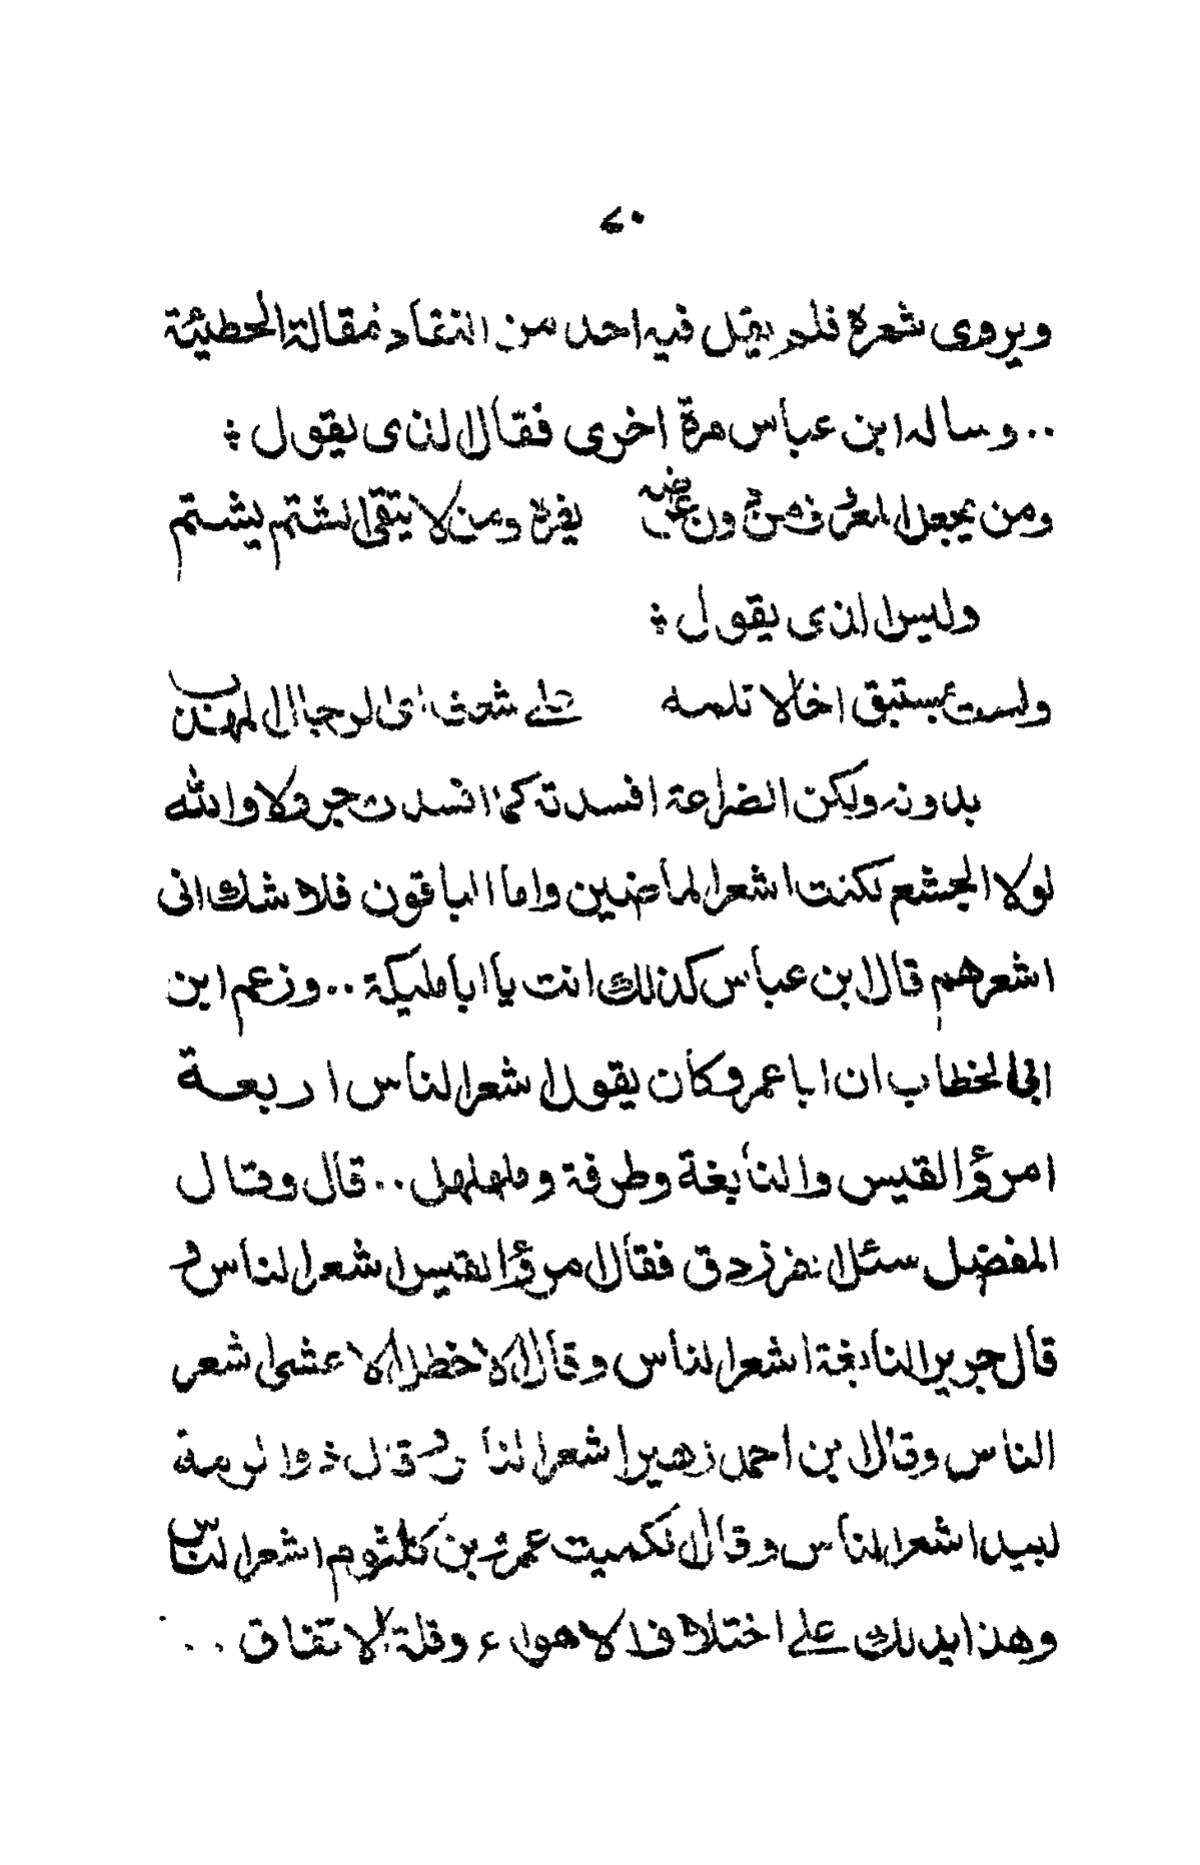 ٧٠
ويروى شعره فلم يقل فيه احد من النقاد مقالة الحطيئة
.. وساله ابن عباس مرة اخرى فقال الذى يقول :
ومن يجعل المعروف من دون عرضه يفره ومن لا يتقى الشتم يشتم
وليس الذى يقول :
ولست بمستبق اخا لا تلمه على شعث اى الرجال المهذب
بدونه ولكن الضراعة افسدته كما افسدت جرولا والله
لولا الجشع لكنت اشعر الماضين واما الباقون فلا شك انى
اشعرهم قال ابن عباس كذلك انت يا ابا مليكة .. وزعم ابن
ابى الخطاب ان ابا عمرو كان يقول اشعر الناس اربعة
امرؤ القيس والنابغة وطرفة ومهلهل .. قال وقال
المفضل سئل الفرزدق فقال امرؤ القيس اشعر الناس و
قال جرير النابغة اشعر الناس وقال الاخطل الاعشى اشعر
الناس وقال ابن احمد زهير اشعر الناس وقال ذو الرمة
لبيد اشعر الناس وقال الكميت عمرو بن كلثوم اشعر الناس
وهذا يدلك على اختلاف الاهواء وقلة الاتفاق ..